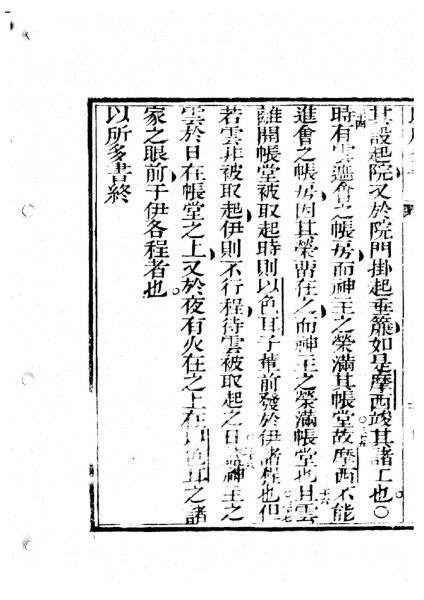 其設起院又於院門掛起垂簾如是摩西竣其諸工也○
時有雲遮會之帳房而神主之榮滿其帳堂故摩西不能
進會之帳房因其榮雲在之而神主之榮滿帳堂也且雲
離開帳堂被取起時則以色耳子輩前發於伊諸程也但
若雲非被取起伊則不行程待雲被取起之日蓋神主之
雲於日在帳堂之上又於夜有火在之上在以色耳之諸
家之眼前于伊各程者也
以所多書終